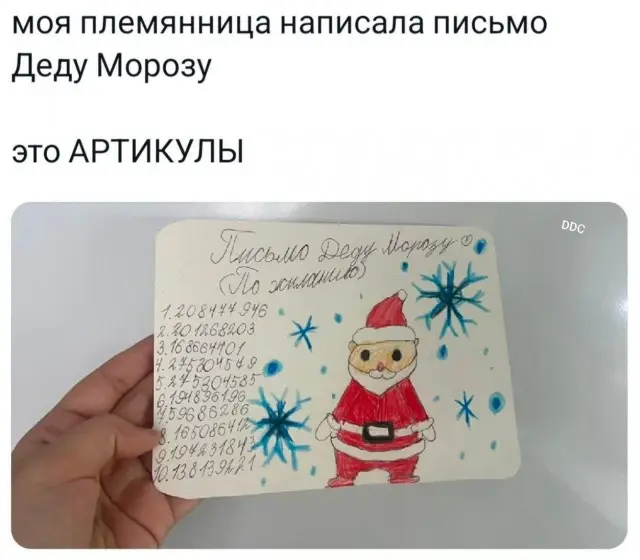 моя племянница написала письмо
Деду Морозу
это АРТИКУЛЫ
DDC
Письмо Деду Морозу
(По жиланию)
1.208477946
2.201268203
3.168664701
4.275304549
5.275304585
6.194896196
7.59686286
8.165086412
9.194231843
10.138139221